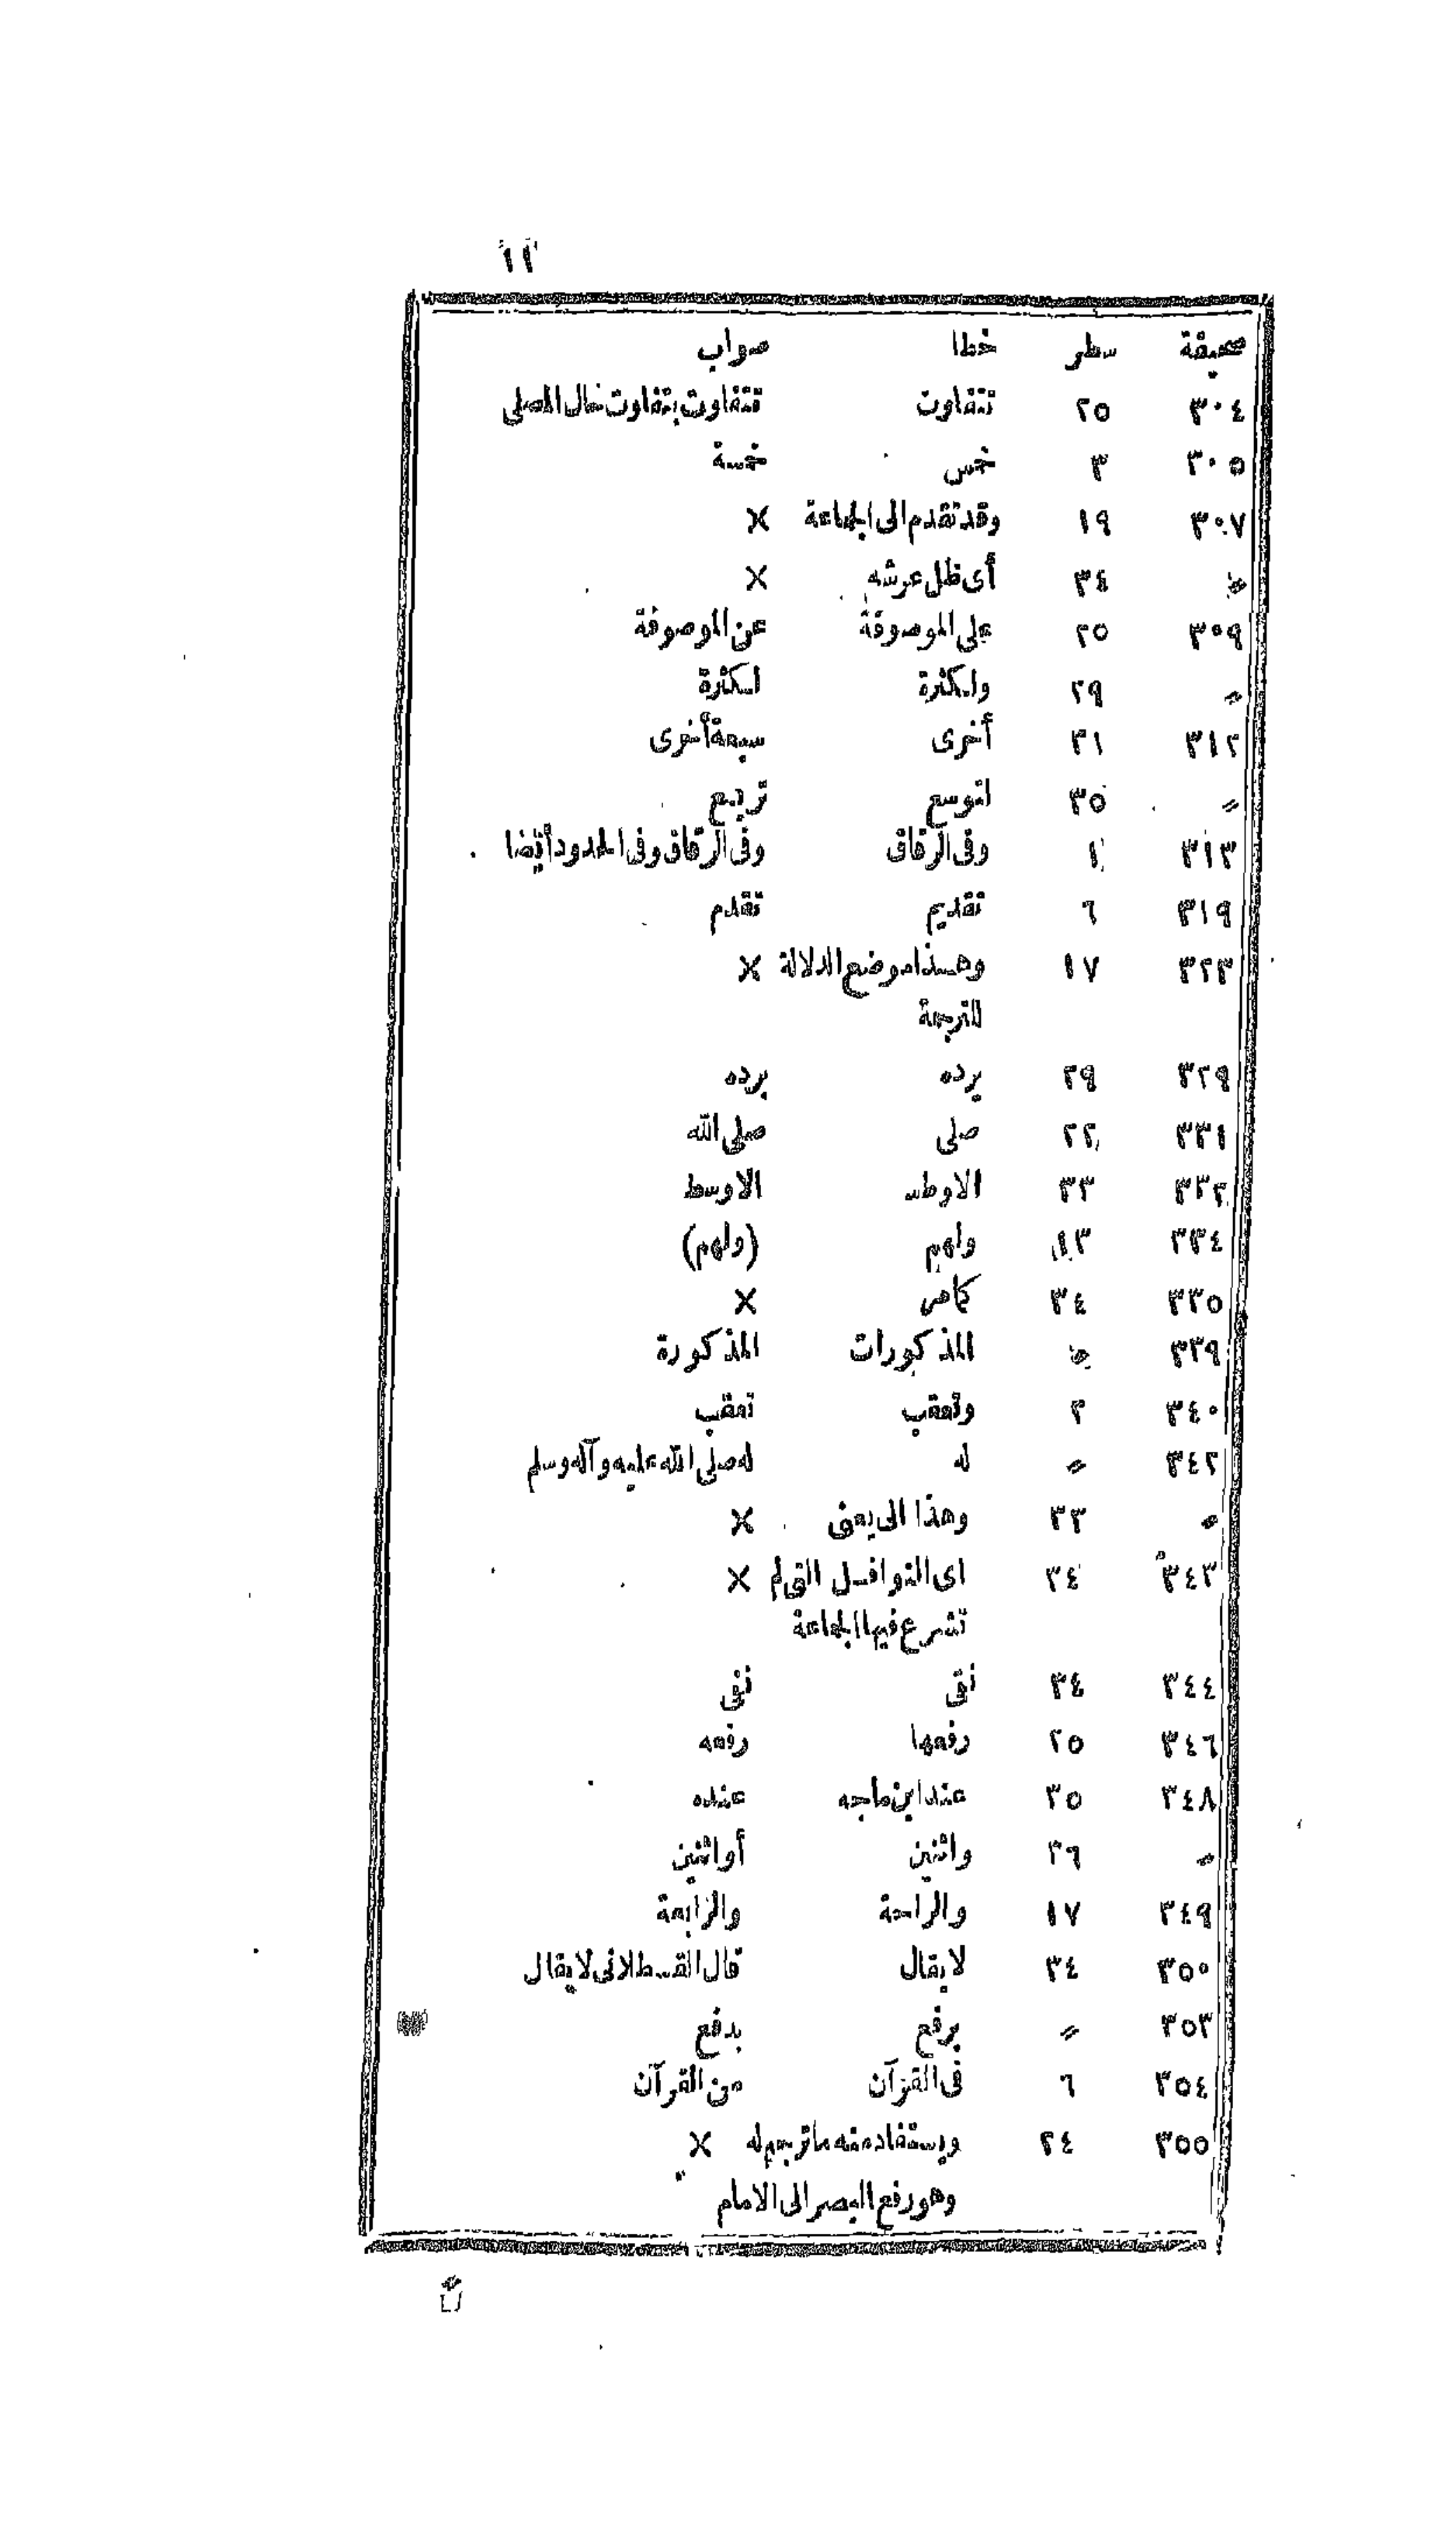 ١٢
صحيفة سطر خطا صواب
٣٠٤ ٢٥ تتفاوت تتفاوت بتفاوت حال المصلى
٣٠٥ ٣ خمس خمسة
٣٠٧ ١٩ وقد تقدم الى الجماعة ×
〃 ٣٤ أى ظل عرشه ×
٣٠٩ ٢٥ على الموصوفة عن الموصوفة
〃 ٢٩ والكثرة لكثرة
٣١٢ ٣١ أخرى سبعة أخرى
〃 ٣٥ لتوسع تربع
٣١٣ ١ وفى الرقاق وفى الرقاق وفى الحدود أيضا
٣١٩ ٦ تقديم تقدم
٣٢٣ ١٧ وهذا موضع الدلالة ×
للترجمة
٣٢٩ ٢٩ يرده برده
٣٣١ ٢٢ صلى صلى الله
٣٣٢ ٣٣ الاوطس الاوسط
٣٣٤ ١٣ ولهم (ولهم)
٣٣٥ ٣٤ كامر ×
٣٣٩ 〃 المذكورات المذكورة
٣٤٠ ٢ وتعقب تعقب
٣٤٢ 〃 له له صلى الله عليه وآله وسلم
〃 ٣٣ وهذا الى يعنى ×
٣٤٣ ٣٤ اى النوافل التى لم ×
تشرع فيها الجماعة
٣٤٤ ٣٤ نقى نفى
٣٤٦ ٢٥ رفعها رفعه
٣٤٨ ٣٥ عند ابن ماجه عنده
〃 ٣٦ واثنين أواثنين
٣٤٩ ١٧ والراحة والرابعة
٣٥٠ ٣٤ لا يقال قال القسطلانى لا يقال
٣٥٣ 〃 يرفع يدفع
٣٥٤ ٦ فى القرآن من القرآن
٣٥٥ ٢٤ ويستفاد منه ما ترجم له ×
وهو رفع البصر الى الامام